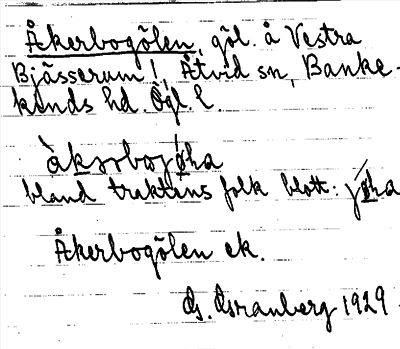 Åkerbogölen, göl. å Vestra
Bjässerum !, Åtvid sn, Banke-
kinds hd. Ögl. l.
àkərbωgø̀ha
bland traktens folk blott: jø̀ha
Åkerbogölen ek.
G. Granberg 1929.